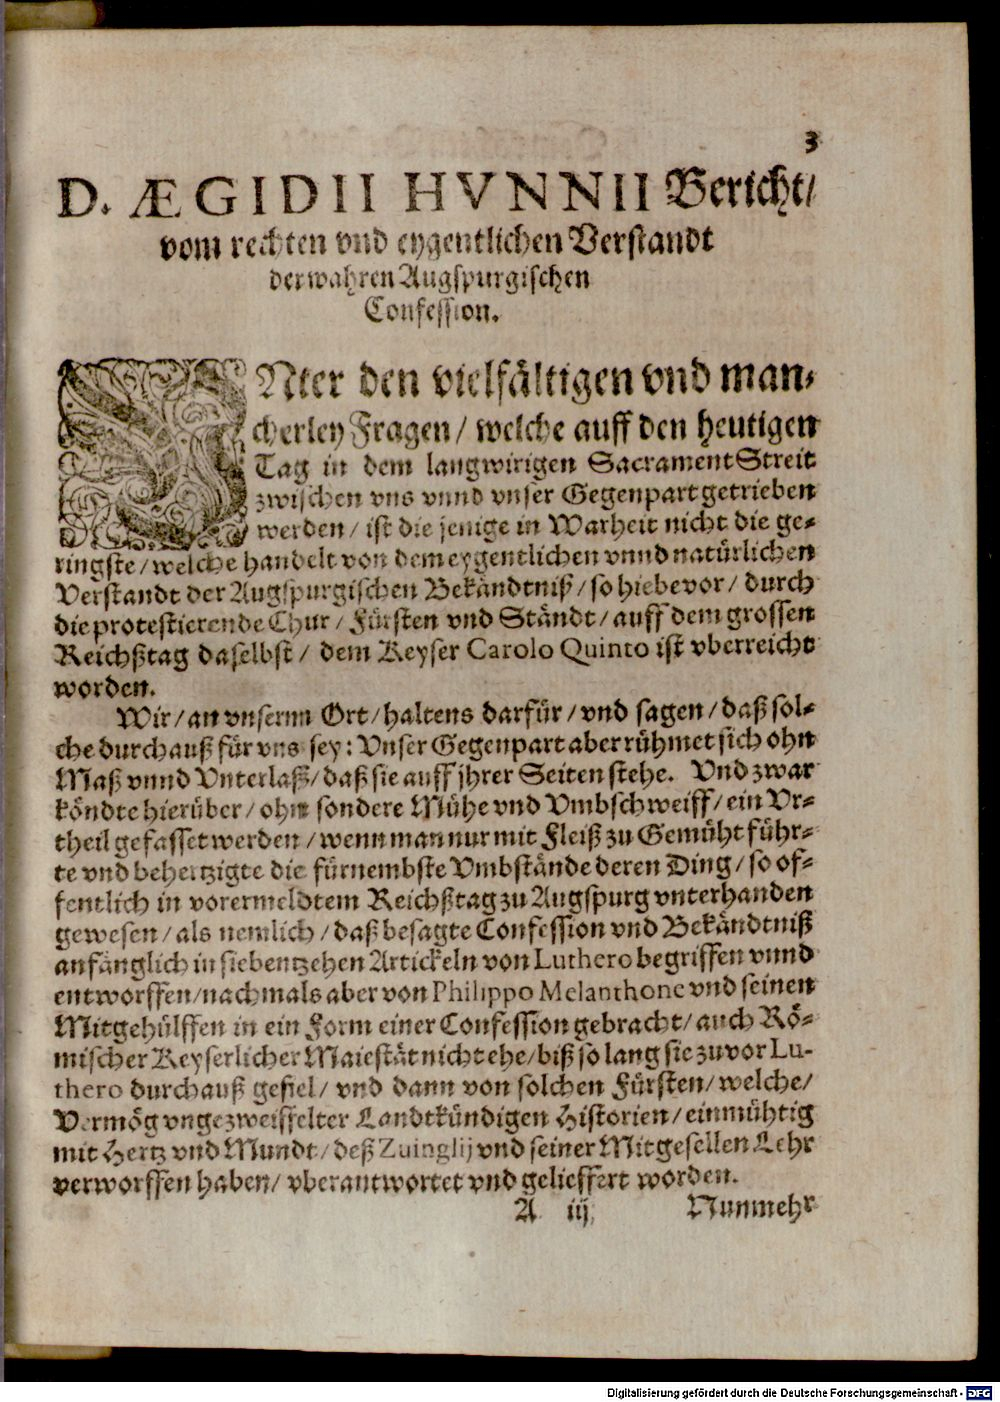 3
D. ÆGIDII HVNNII Bericht/
vom rechten vnd eygentlichen Verstandt
der wahren Augspurgischen
Confession.
VNter den vielfältigen vnd man-
cherley Fragen / welche auff den heutigen
Tag in dem langwirigen Sacrament Streit
zwischen vns vnnd vnser Gegenpart getrieben
werden / ist die jenige in Warheit nicht die ge-
ringste / welche handelt von dem eygentlichen vnnd natürlichen
Verstandt der Augspurgischen Bekändtniß / so hiebevor / durch
die protestierende Chur / Fürsten vnd Ständt / auff dem grossen
Reichßtag daselbst / dem Keyser Carolo Quinto ist vberreicht
worden.
Wir / an vnserm Ort / haltens darfür / vnd sagen / daß sol-
che durchauß für vns sey: Vnser Gegenpart aber rühmet sich ohn
Maß vnnd Vnterlaß / daß sie auff jhrer Seiten stehe. Vnd zwar
köndte hierüber / ohn sondere Mühe vnd Vmbschweiff / ein Vr-
theil gefasset werden / wenn man nur mit Fleiß zu Gemüht führ-
te vnd behertzigte die fürnembste Vmbstände deren Ding / so of-
fentlich in vorermeldtem Reichßtag zu Augspurg vnterhanden
gewesen / als nemlich / daß besagte Confession vnd Bekändtniß
anfänglich in siebentzehen Artickeln von Luthero begriffen vnnd
entworffen / nachmals aber von Philippo Melanthone vnd seinen
Mitgehülffen in ein Form einer Confession gebracht / auch Rö-
mischer Keyserlicher Maiestät nicht ehe / biß so lang sie zuvor Lu-
thero durchauß gefiel / vnd dann von solchen Fürsten / welche /
Vermög vngezweiffelter Landtkündigen Historien / einmühtig
mit Hertz vnd Mundt / deß Zuinglij vnd seiner Mitgesellen Lehr
verworffen haben / vberantwortet vnd gelieffert worden.
A iij Nunmehr
Digitalisierung gefördert durch die Deutsche Forschungsgemeinschaft - DFG